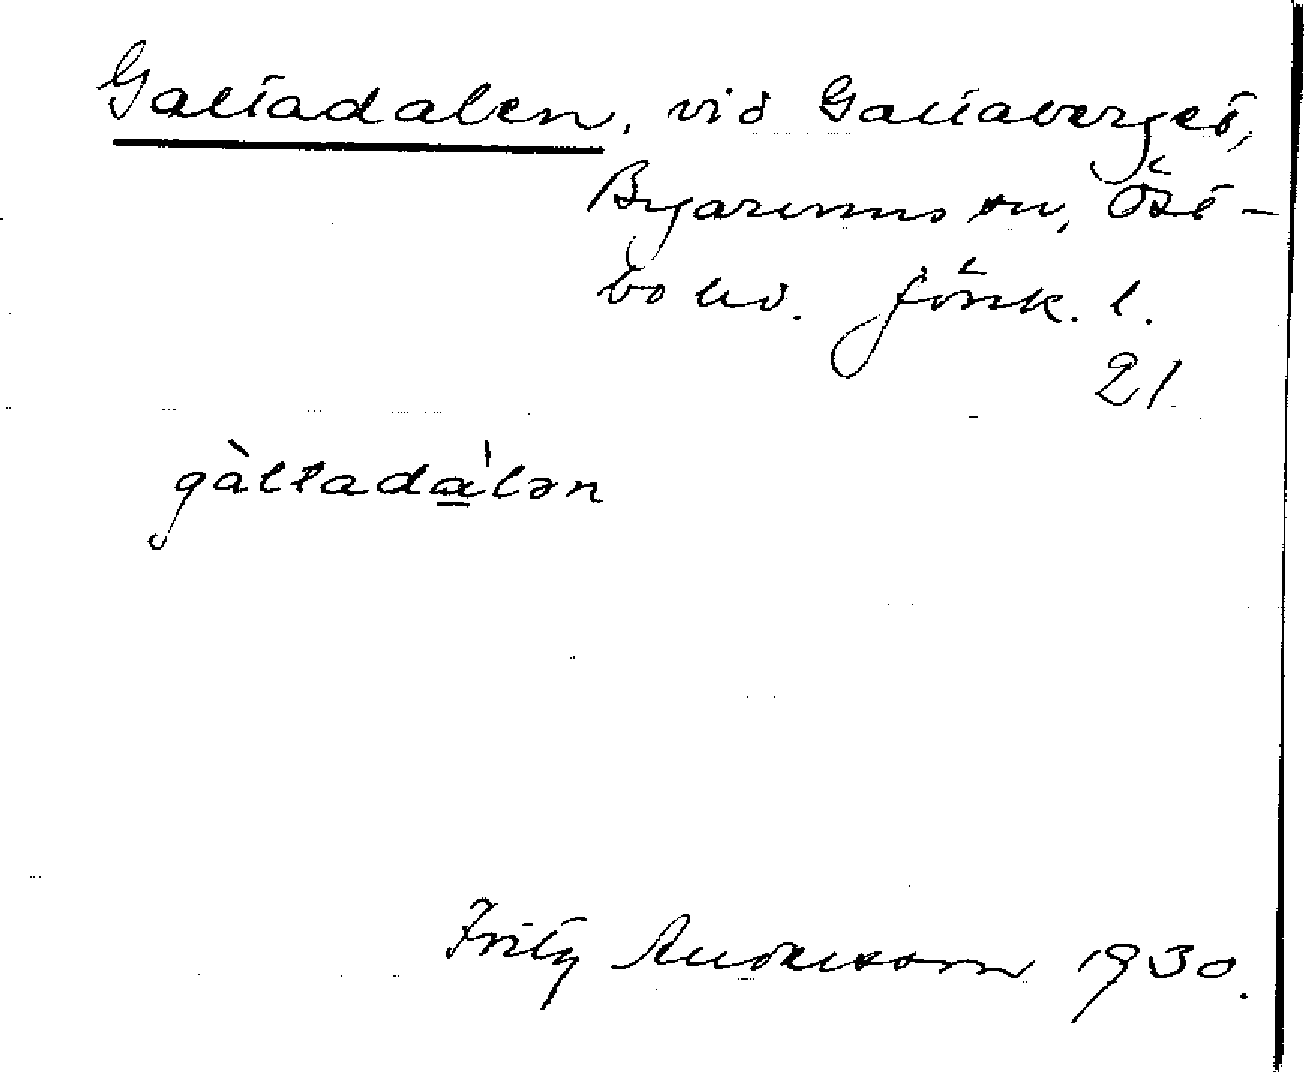 Galtadalen, vid Galtaberget,
Byarums sn, Öst-
bo hd. Jönk. l.
21
gàltada̲ˈlən
Fritz Andersson 1930.